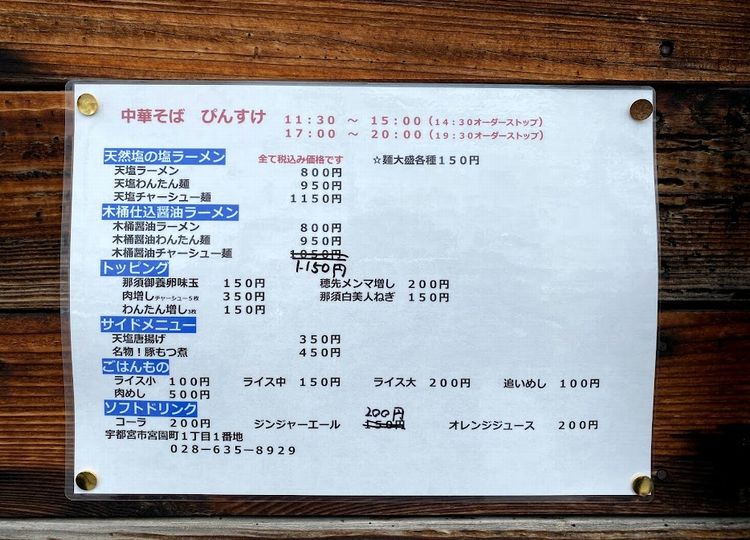 中華そば ぴんすけ 11:30 ～ 15:00(14:30オーダーストップ)
17:00 ～ 20:00(19:30オーダーストップ)
天然塩の塩ラーメン 全て税込み価格です ☆麺大盛各種150円
天塩ラーメン 800円
天塩わんたん麺 950円
天塩チャーシュー麺 1150円
木桶仕込醤油ラーメン
木桶醤油ラーメン 800円
木桶醤油わんたん麺 950円
木桶醤油チャーシュー麺 1050円
1150円
トッピング
那須御養卵味玉 150円 穂先メンマ増し 200円
肉増しチャーシュー5枚 350円 那須白美人ねぎ 150円
わんたん増し3枚 150円
サイドメニュー
天塩唐揚げ 350円
名物!豚もつ煮 450円
ごはんもの
ライス小 100円 ライス中 150円 ライス大 200円 追いめし 100円
肉めし 500円
ソフトドリンク
200円
コーラ 200円 ジンジャーエール 150円 オレンジジュース 200円
宇都宮市宮園町1丁目1番地
028-635-8929